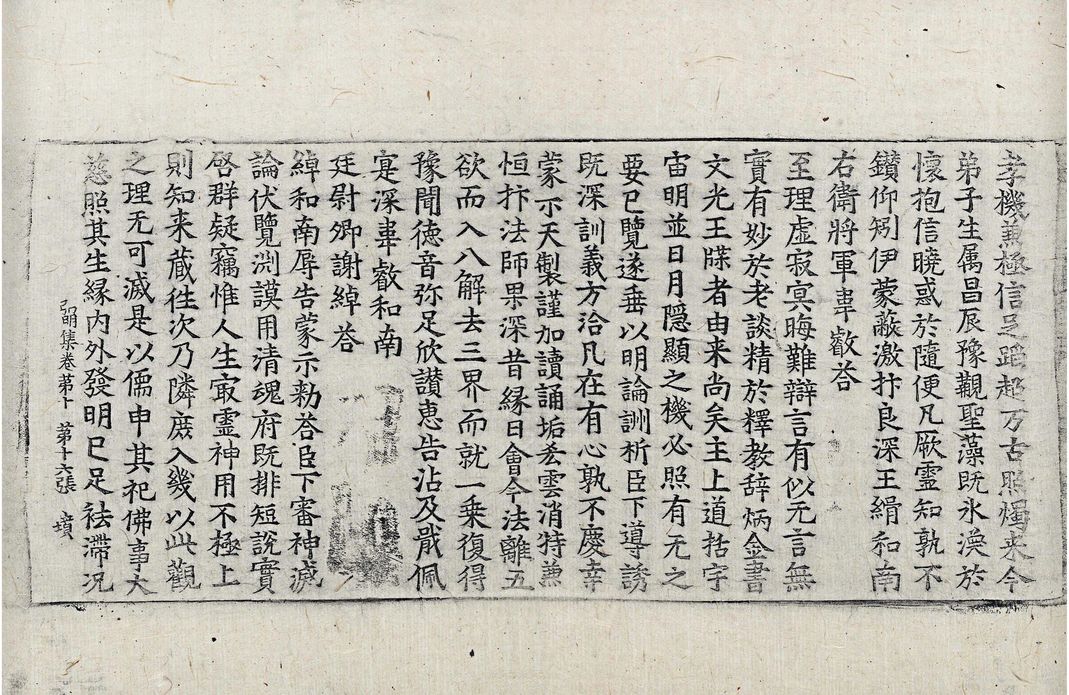 孝機兼極信足蹈超万古照燭来今
弟子生属昌辰豫觀聖藻既氷渙於
懷抱信曉惑於隨便凡厥靈知孰不
鑚仰矧伊蒙蔽激抃良深王緝和南
右衛將軍事叡荅
至理虛寂冥晦難辯言有似无言無
實有妙於老談精於釋教辞炳金書
文光玉牒者由来尚矣主上道括宇
宙明並日月隱顯之機必照有无之
要已覽遂垂以明論訓析臣下導誘
既深訓義方洽凡在有心孰不慶幸
蒙示天製謹加讀誦垢袪雲消特兼
恒抃法師果深昔縁日會今法離五
欲而入八解去三界而就一乗復得
豫聞德音弥足欣讃惠告沾及戢佩
寔深事叡和南
廷尉卿謝綽荅
綽和南辱告蒙示勑荅臣下審神滅
論伏覽渊謨用清魂府既排短說實
啓群疑竊惟人生㝡靈神用不極上
則知来蔵徃次乃隣庶入幾以此觀
之理无可滅是以儒申其祀佛事大
慈照其生縁内外發明已足袪滯况
弘明集卷第十　第十六張　墳